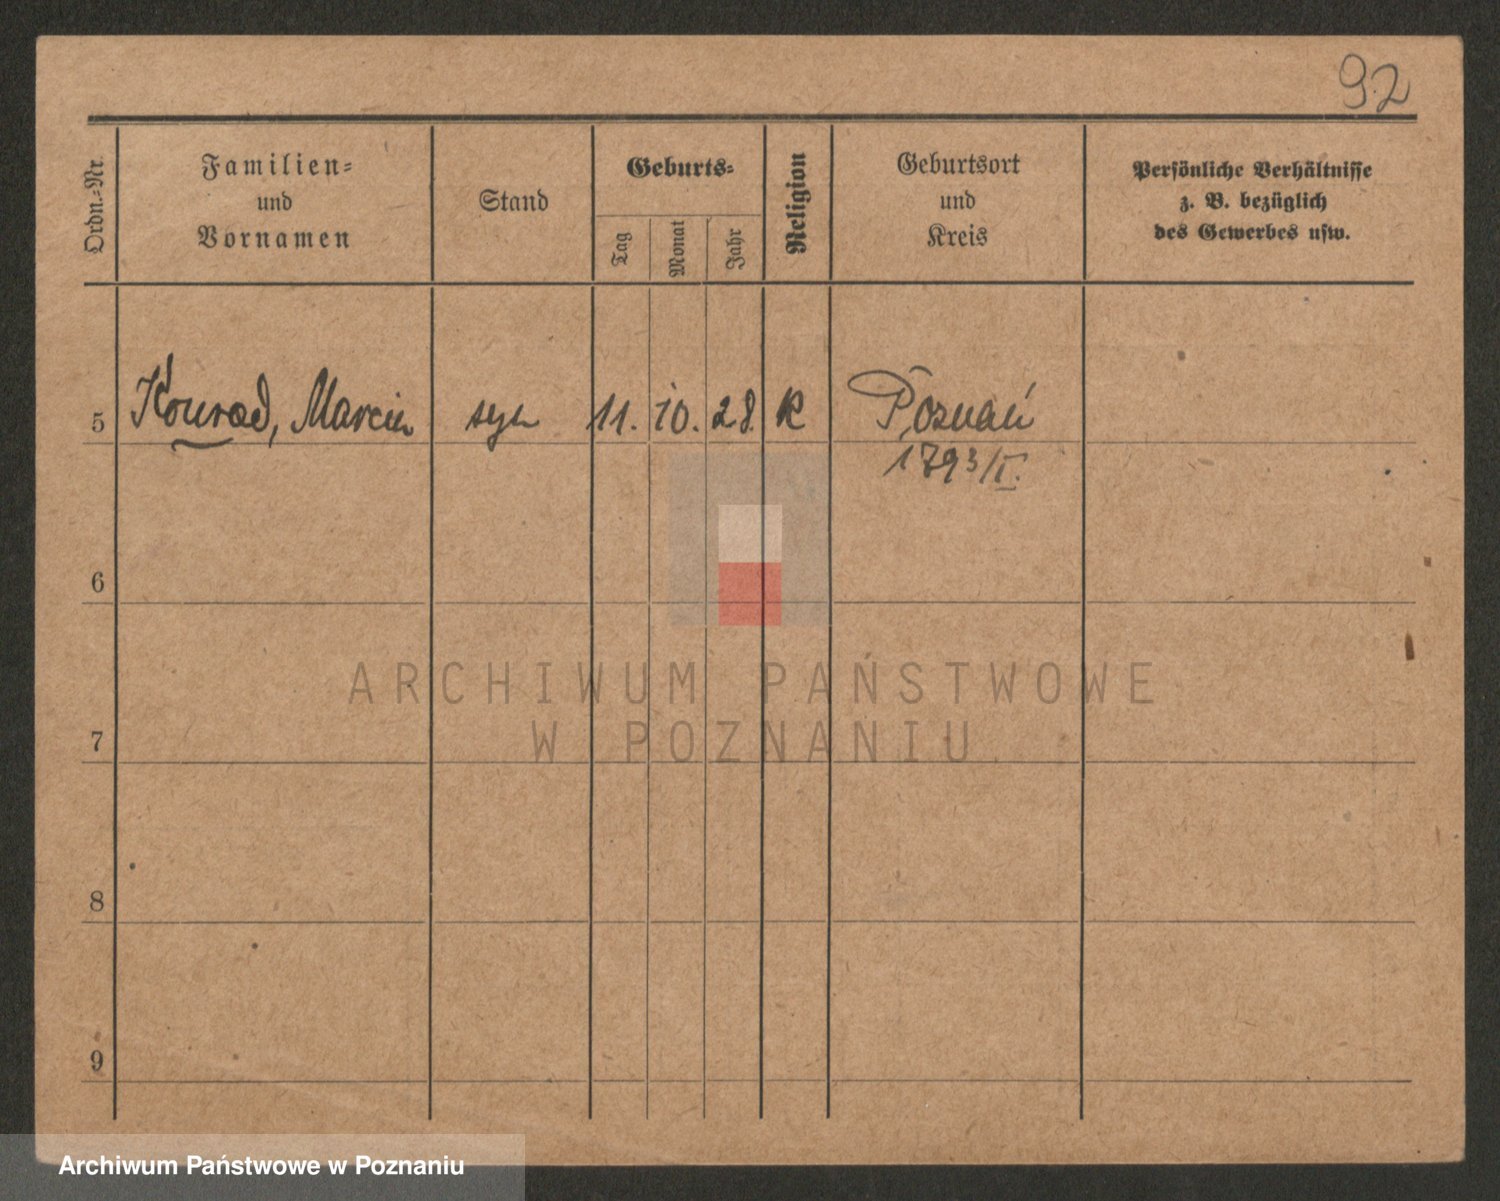 92
Ordn.-Nr.
Familien-
und
Vornamen
Stand
Geburts-
Tag
Monat
Jahr
Religion
Geburtsort
und
Kreis
Persönliche Verhältnisse
z. B. bezüglich
des Gewerbes usw.
5 Konrad, Marcin syn 11. 10. 28. K Poznań
1793/I.
6
7
8
9
ARCHIWUM PAŃSTWOWE
W POZNANIU
Archiwum Państwowe w Poznaniu